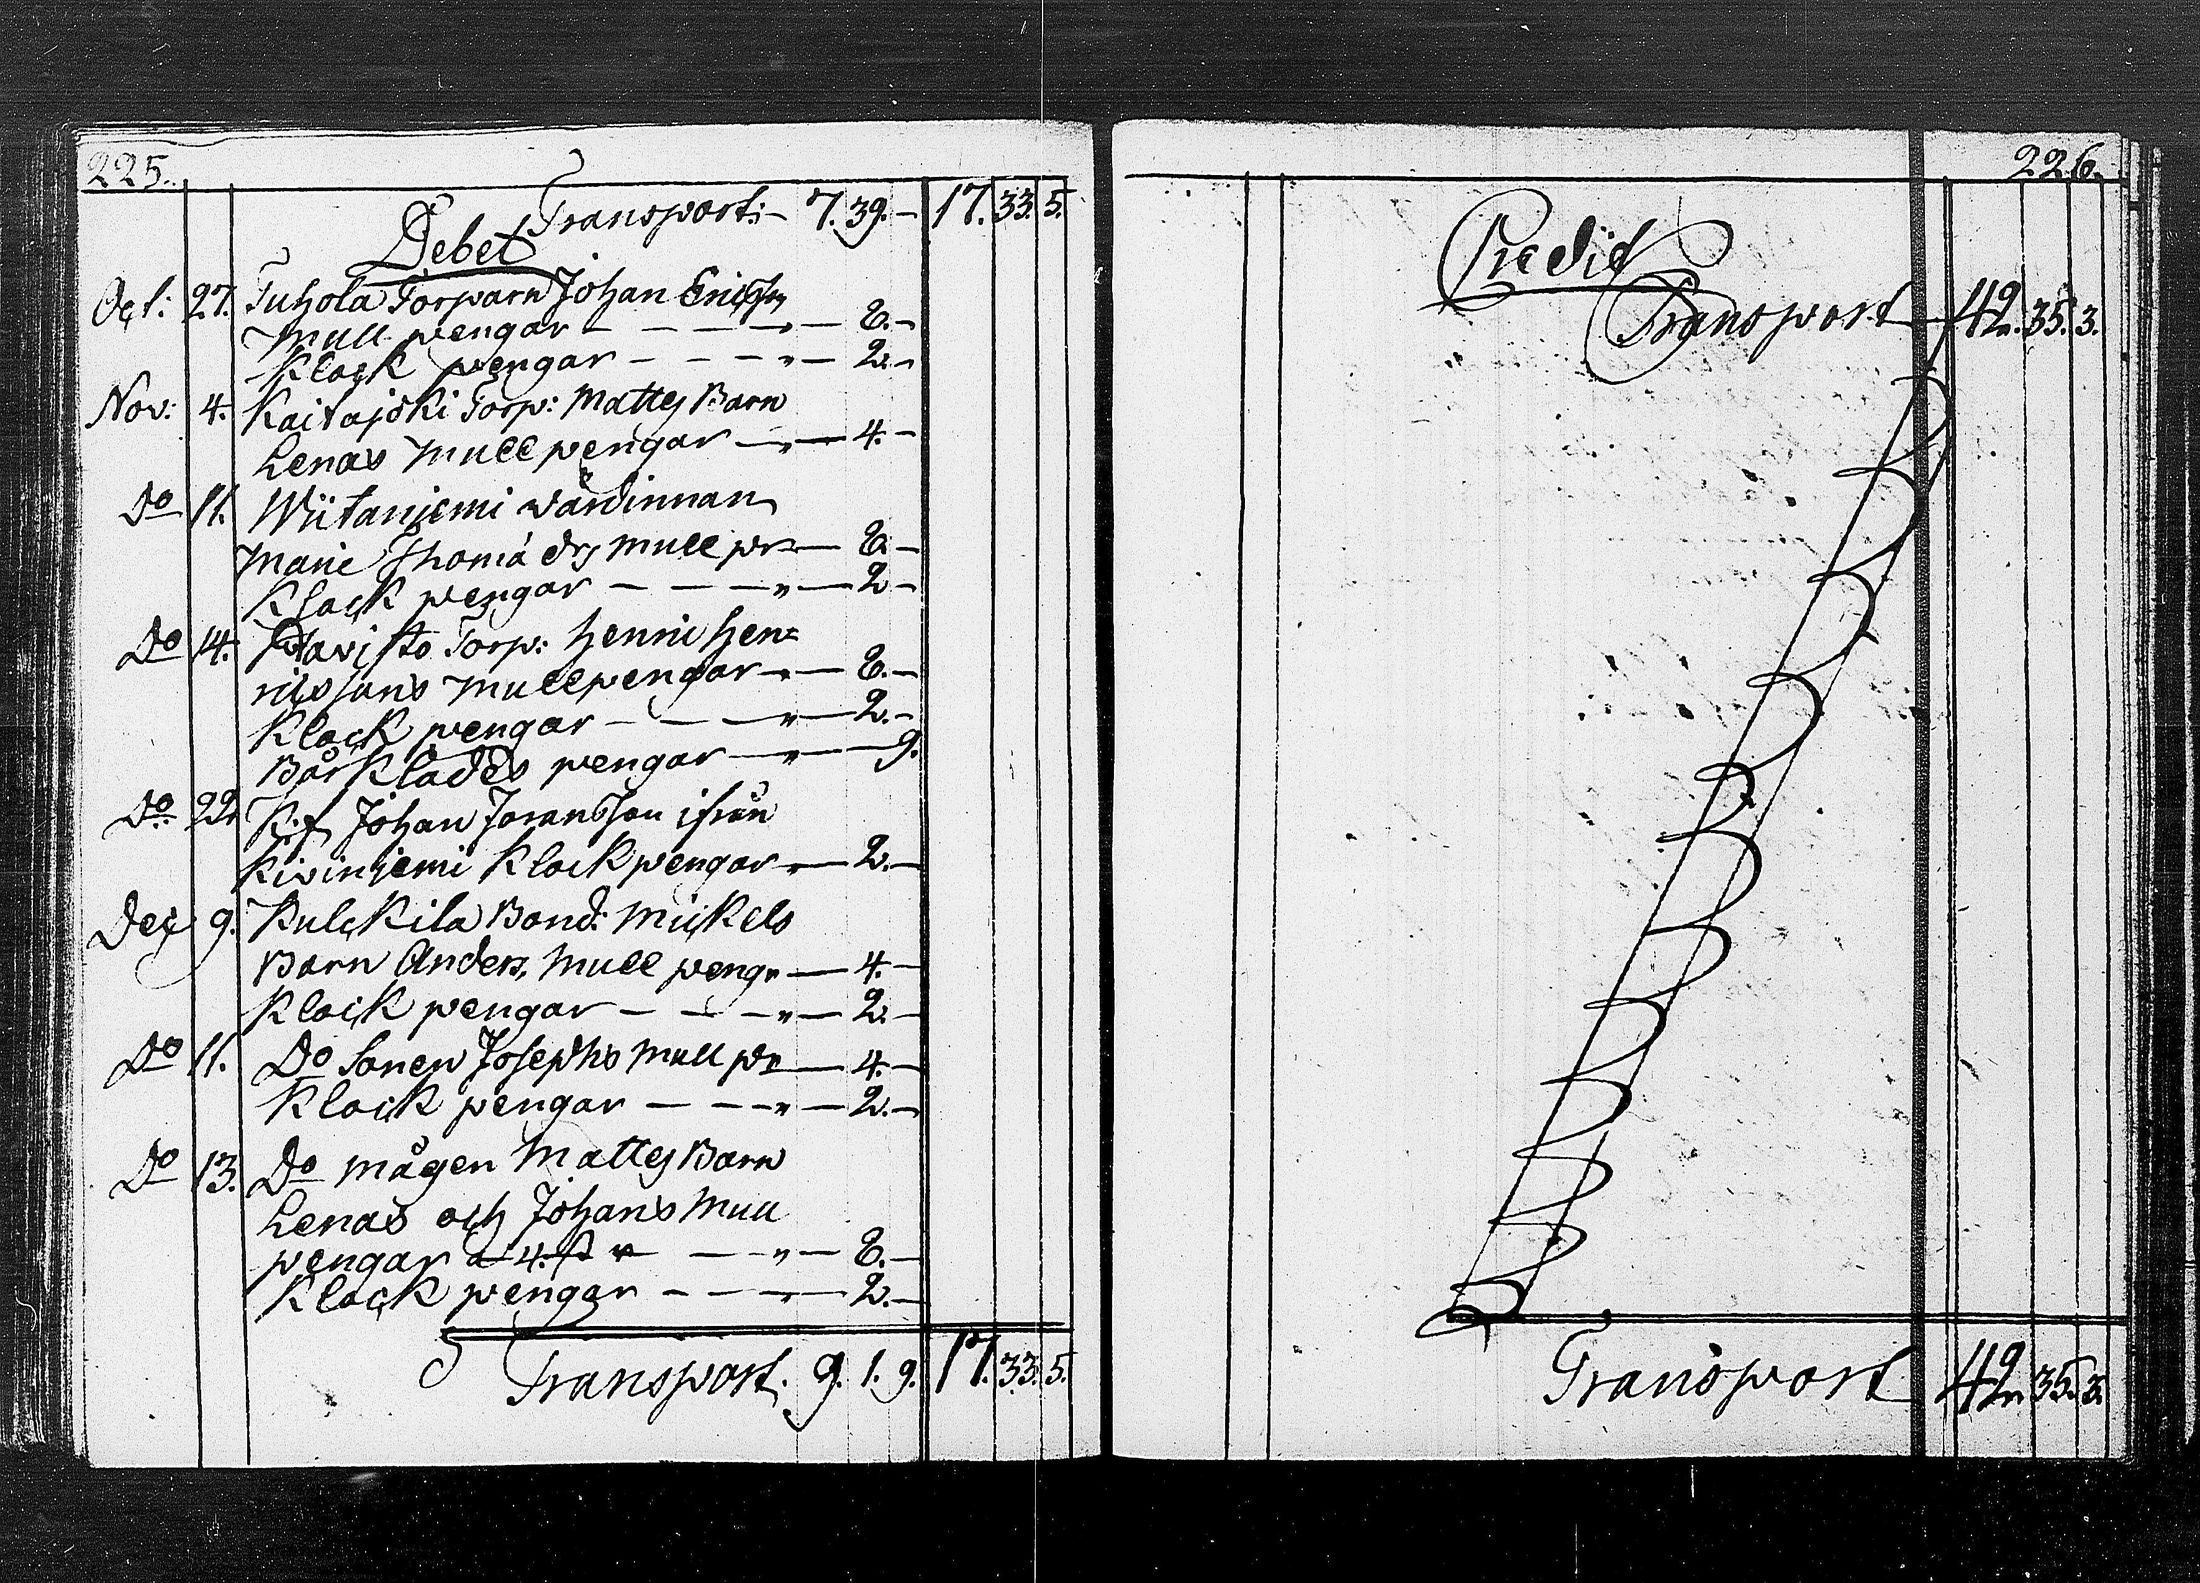 225.
Transport:- 7. 39.- 17. 33. 5.
Debet
Oct: 27. Tuhola Torparn Johan Ericss
mull pengar - - - „ - 8.-
Klock pengar - - - „ - 2.-
Nov: 4. Kaitajoki Torp: Mattes Barn
Lenas Mull pengar - „ - 4.-
Do 11. Wiitaniemi wärdinnan
Marie Thomä drs mull pr - 8.-
Klock pengar - - - „ - 2-
Do 14. Torp: Henric Hen=
ricssons Mullpengar - „ - 8.-
Klock pengar - - - „ - 2.-
Bårklädes pengar - „ - 9.
Do 22. Johan Joransson ifrån
Kiviniemi Klockpengar „ - 2.-
Dec 9. Kulckila Bond: Mickels
Barn Anders, Mull peng„ - 4.-
Klock pengar - - - „ - 2.-
Do 11. Do Sonen Josephs Mull pr - 4.-
Klock pengar - - - „ - 2.-
Do 13. Do mågen Mattes Barn
Lenas och Johans Mull
pengar a 4. - - „ - 8.-
Klock pengar - - - - 2.-
Transport. 9. 1. 9. 17. 33. 5.
226.
Credit
Transport 42. 35. 3.
Transport 42. 35. 3.